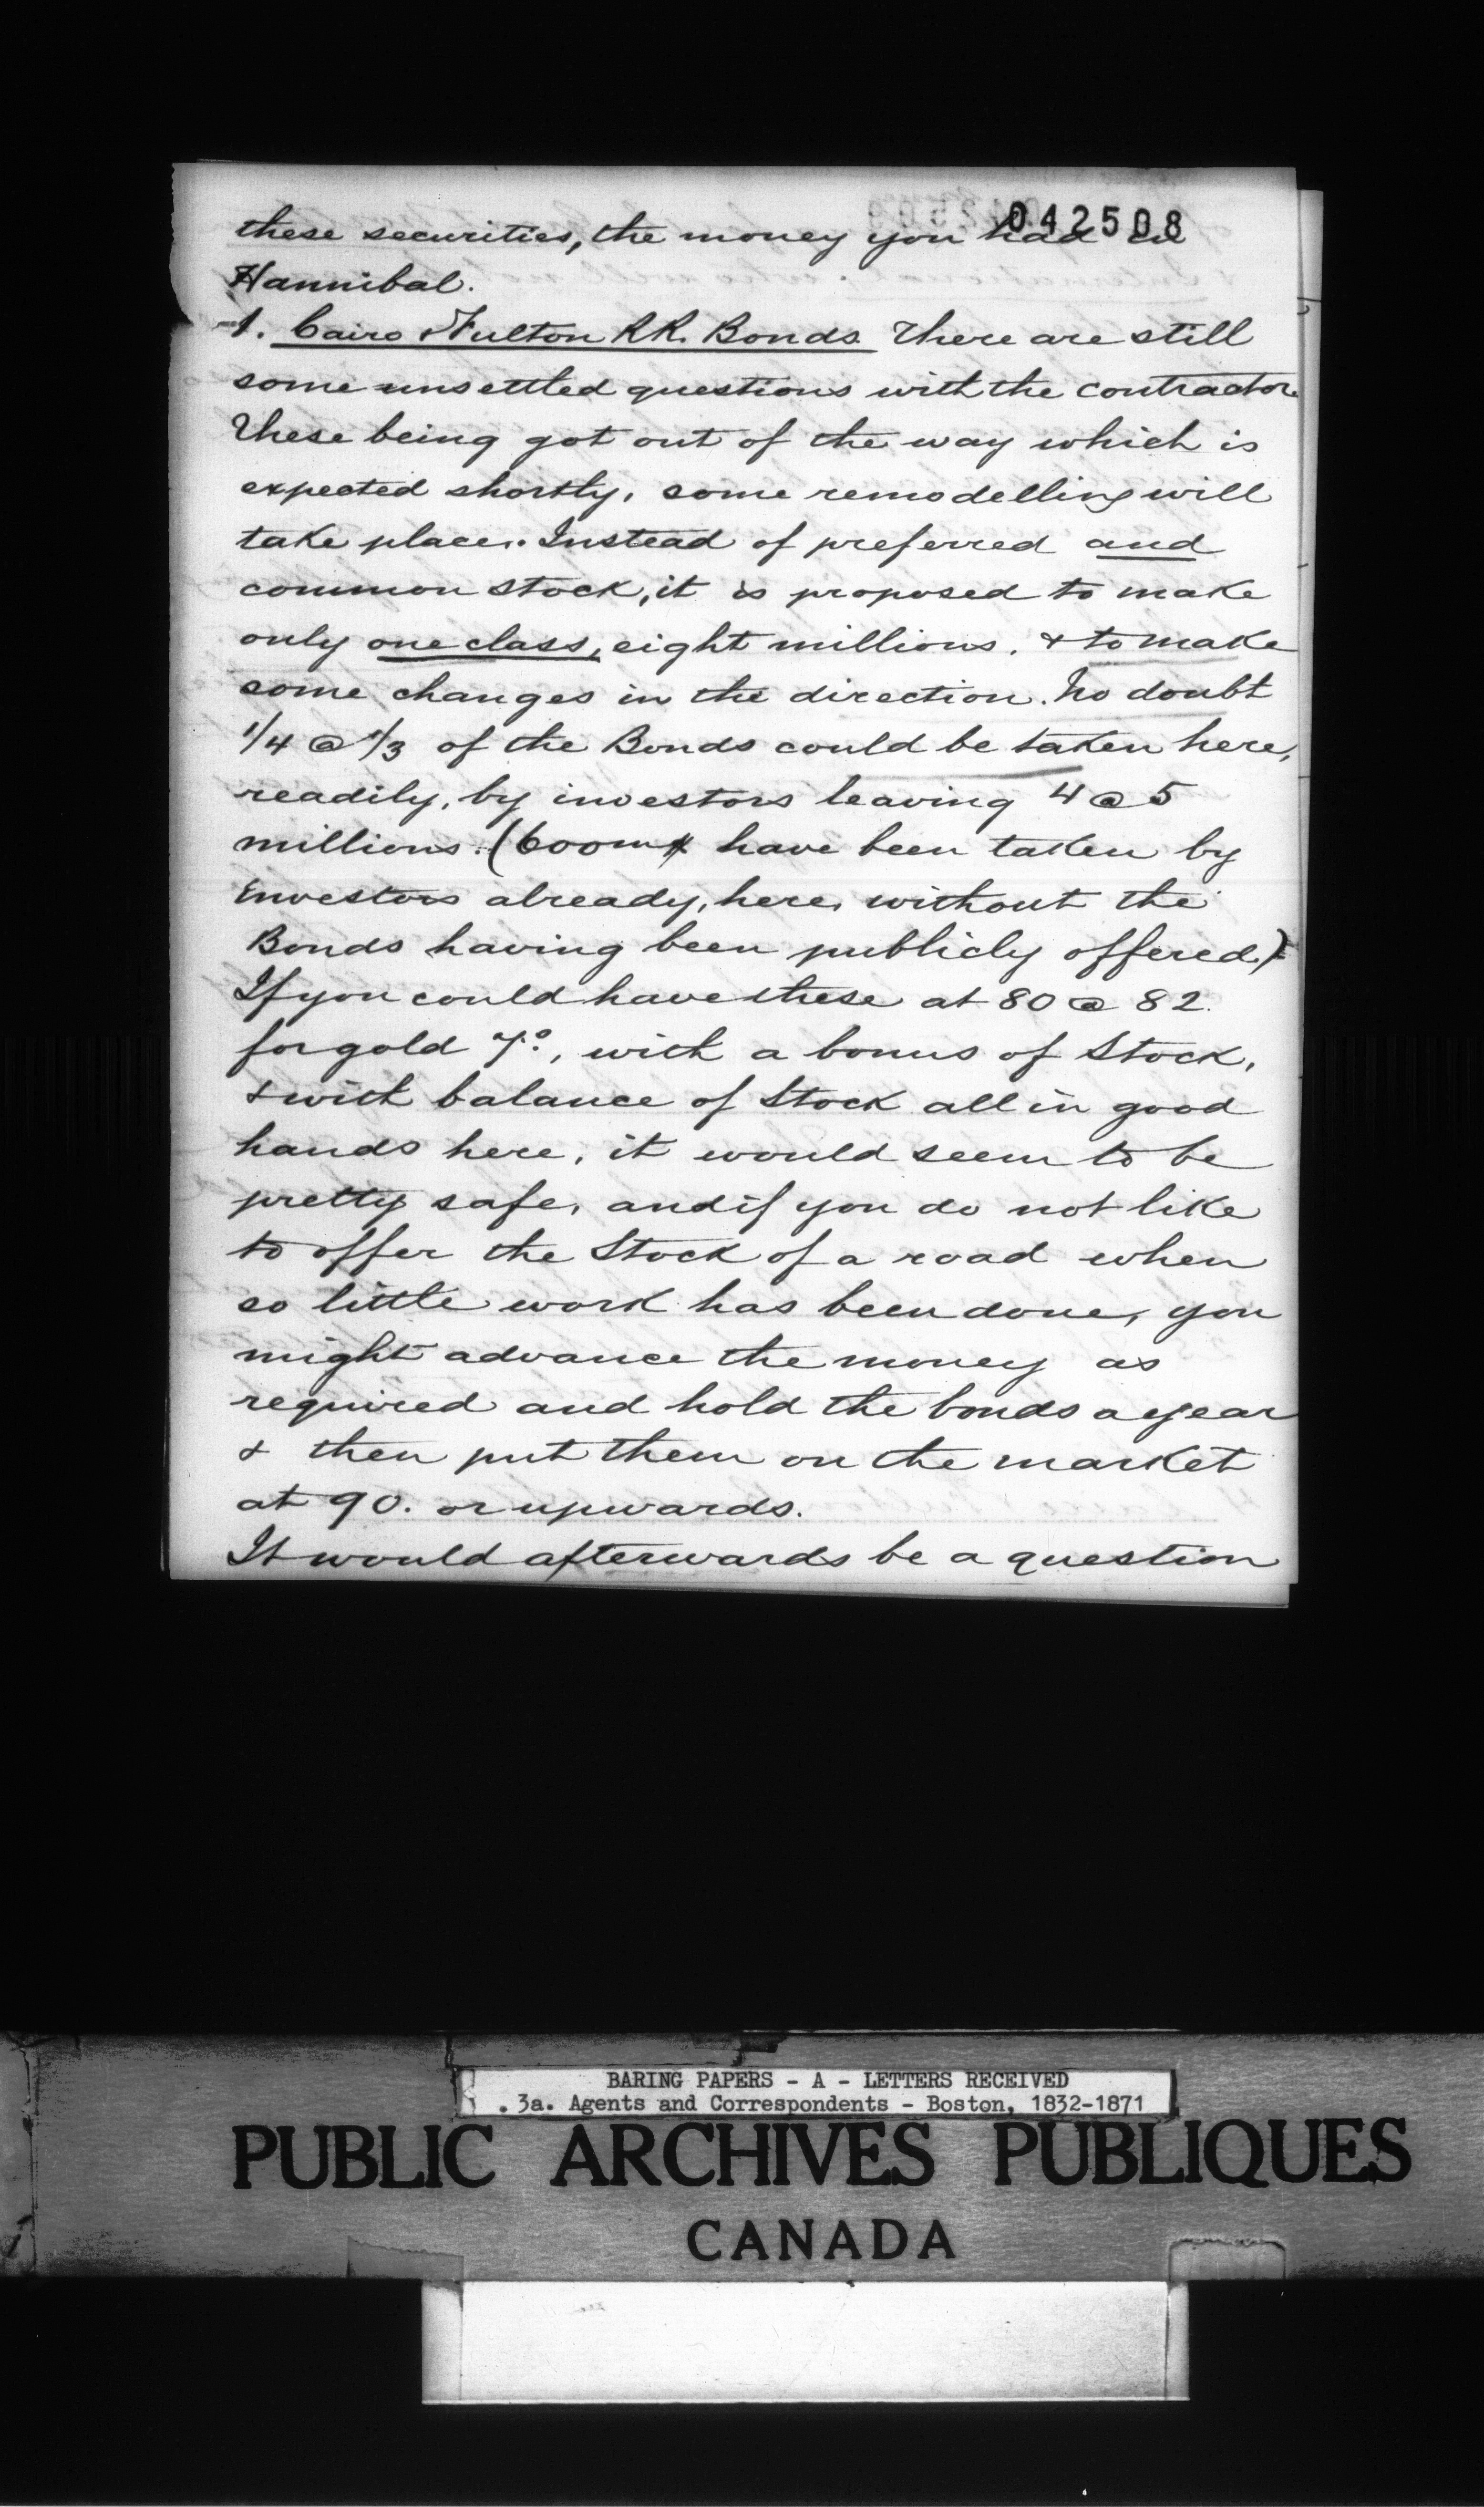 042508
these securities, the money you had in
Hannibal.
1. Cairo & Fulton RR. Bonds. There are still
some unsettled questions with the contractor.
These being got out of the way which is
expected shortly, some remodelling will
take place. Instead of preferred and
common stock, it is proposed to make
only one class, eight millions. & to make
some changes in the direction. No doubt
1/4 @ 1/3 of the Bonds could be taken here,
readily, by investors leaving 4 @ 5
millions. (600m$ have been taken by
Investors already, here, without the
Bonds having been publicly offered.)
If you could have these at 80 @ 82.
for gold 7%, with a bonus of Stock,
& with balance of Stock all in good
hands here, it would seem to be
pretty safe, and if you do not like
to offer the Stock of a road when
so little work has been done, you
might advance the money as
required and hold the bonds a year
& then put them on the market
at 90. or upwards.
It would afterwards be a question
BARING PAPERS - A - LETTERS RECEIVED
. 3a. Agents and Correspondents - Boston, 1832-1871
PUBLIC ARCHIVES PUBLIQUES
CANADA